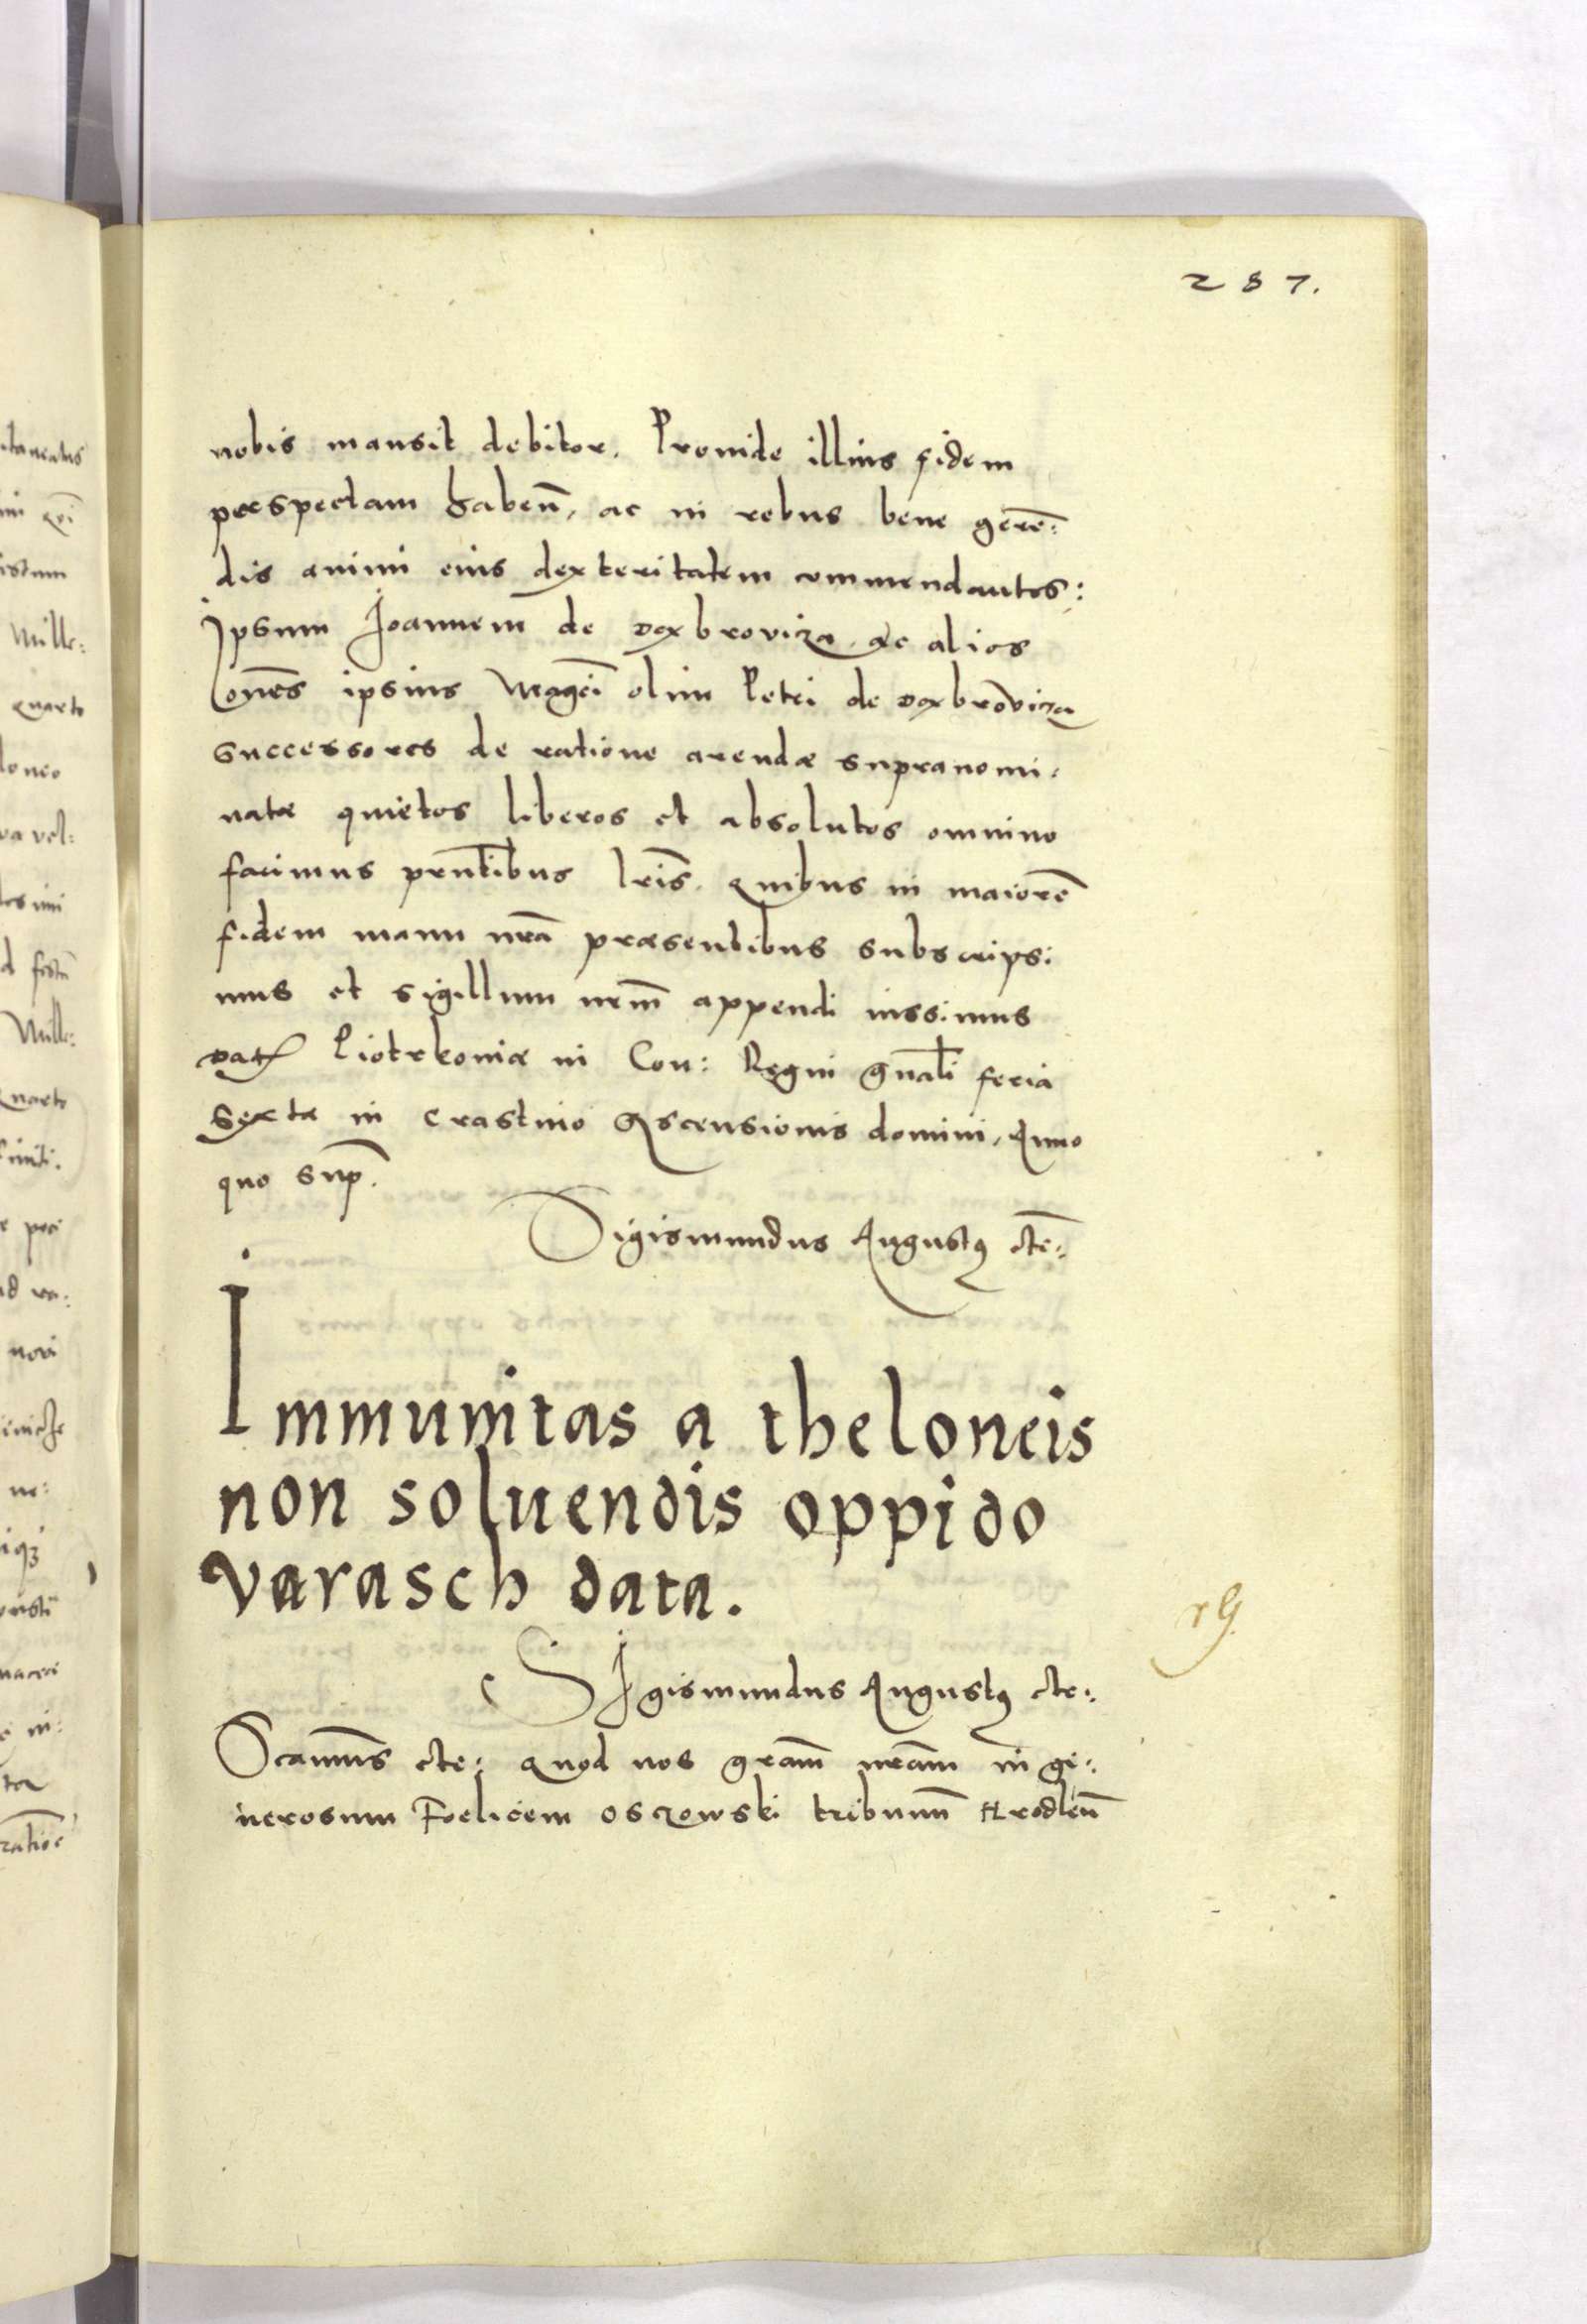 287.
nobis mansit debitor. Provide illius fidem
perspectam habeñ, ac in rebus bene gerē:
dis animi eius dexteritatem commendantes:
Ipsum Joannem de Dąbrovicza, ac alios
om̄es ipsius Mag̃ci olim Petri de Dąbrovicza
successores de ratione arendæ supranomi:
natæ quietos liberos et absolutos omnino
facimus pr̃ntibus lr̃is. Quibus in maiorē
fidem manu nr̃a præsentibus subscripsi:
mus et sigillum nr̃m appendi iussimus
Dat̃ Piotrkoviæ in Con: Regni gñali feria
sexta in crastino Ascensionis domini, Anno
quo sup̃.
Sigismundus Augustꝰ etc̃:
Immunitas a theloneis
non soluendis oppido
Varasch data.
SIgismundus Augustꝰ etc:
Scamus̃ etc: Quod nos gr̃am nr̃am in ge:
nerosum Foelicem Osczowski tribunum Hrodleñ